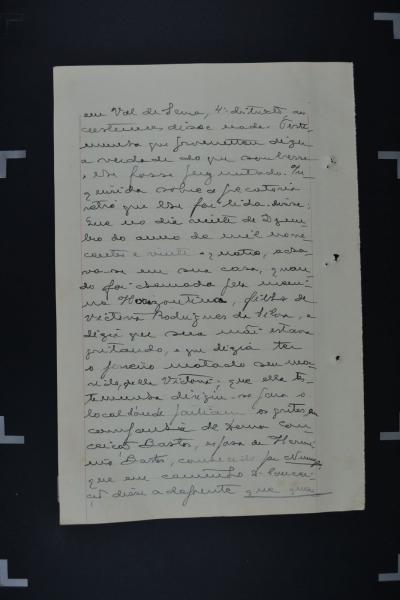 em Val de Serra, 4º districto, aos
costumes disse nada. Teste-
munha que prometteu dizer
a verdade do que soubesse
e lhe fosse perguntado. In-
querida sobre a precatoria
retro que lhe foi lida, disse:
Que no dia vinte de Dezem-
bro do anno de mil nove
centos e vinte e quatro, acha-
va-se em sua casa, quan-
do foi chamada pela meni-
na Horizontina, filha de
Victoria Rodrigues da Silva, e
dizia que sua mãi estava
gritando, e que dizia ter
o João matado seu ma-
rido, della Victoria; que ella tes-
temunha dirigiu-se para o
local donde partiam os gritos, em
companhia de Dona Con-
ceição Bastos, esposa de Hermi-
nio Bastos, conhecido por
que em caminho D. Concei-
ção disse a depoente que que